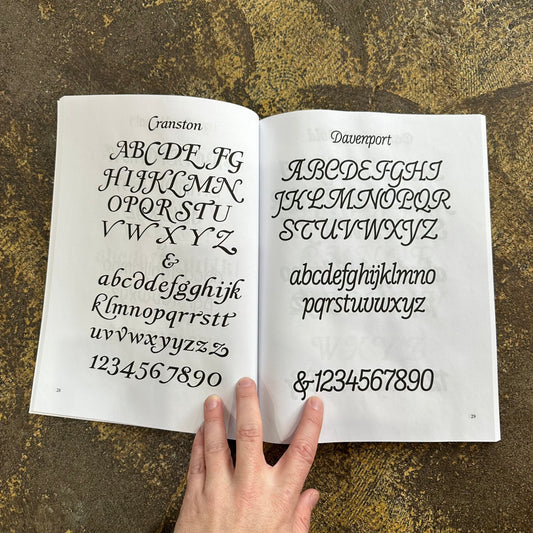 Cranston
ABCDEFG
HIJKLMN
OPQRSTU
VWXYZ
&
abcddefgghijk
klmnopqrrstt
uvvwxyyzzz
1234567890
28
Davenport
ABCDEFGHI
JKLMNOPQR
STUVWXYZ
abcdefghijklmno
pqrstuvwxyz
&1234567890
29